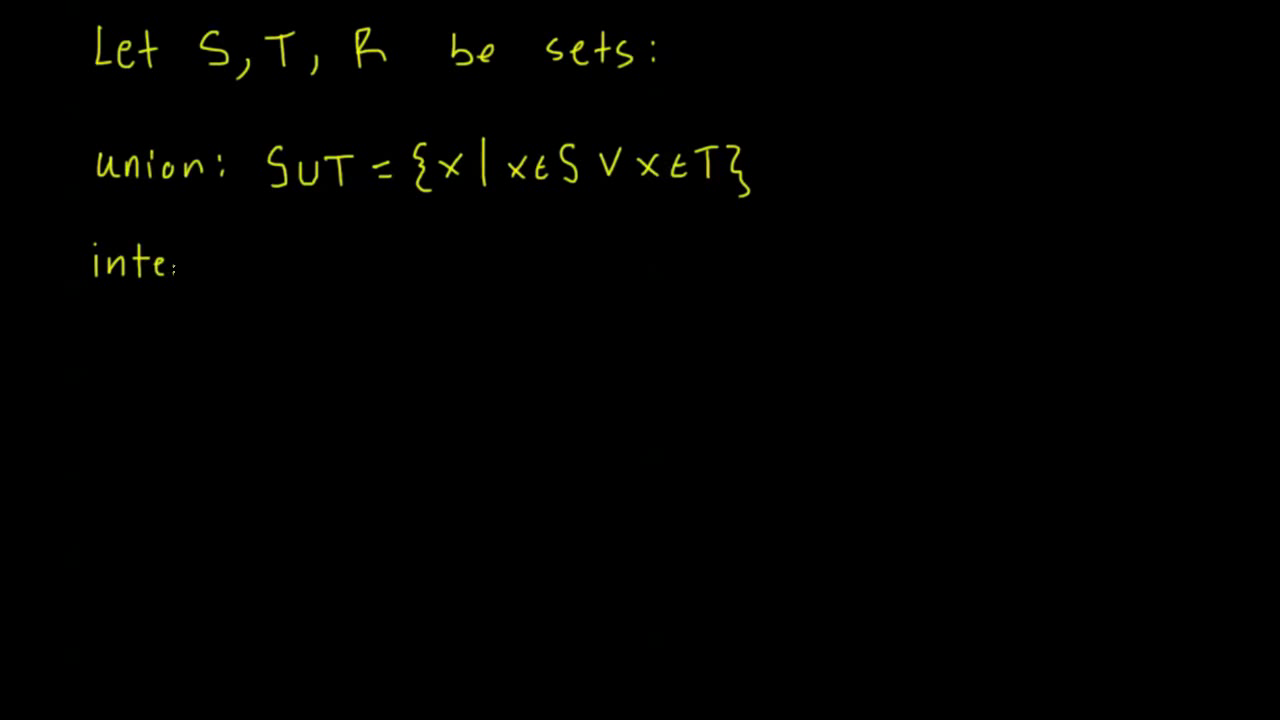 Let S, T, R be sets:
union: S∪T = {x | x∈S ∨ x∈T}
inte